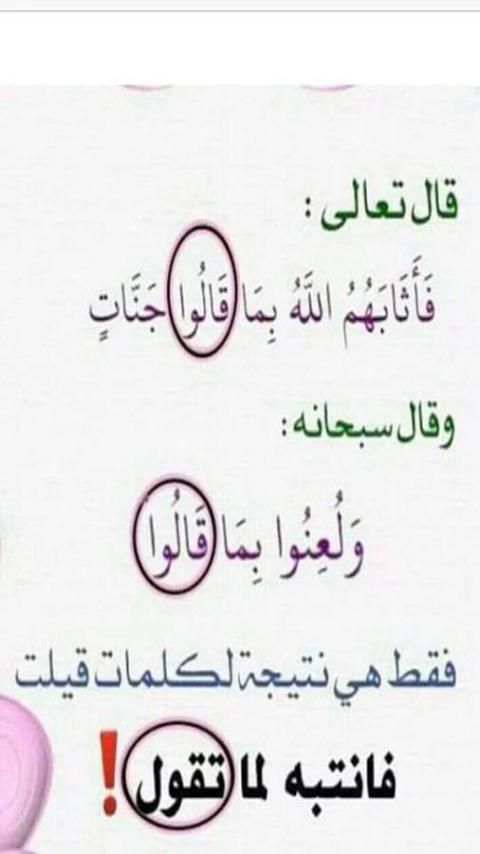 قال تعالى :
فَأَثَابَهُمُ اللَّهُ بِمَا قَالُوا جَنَّاتٍ
وقال سبحانه :
وَلُعِنُوا بِمَا قَالُوا
فقط هي نتيجة لكلمات قيلت
فانتبه لما تقول !